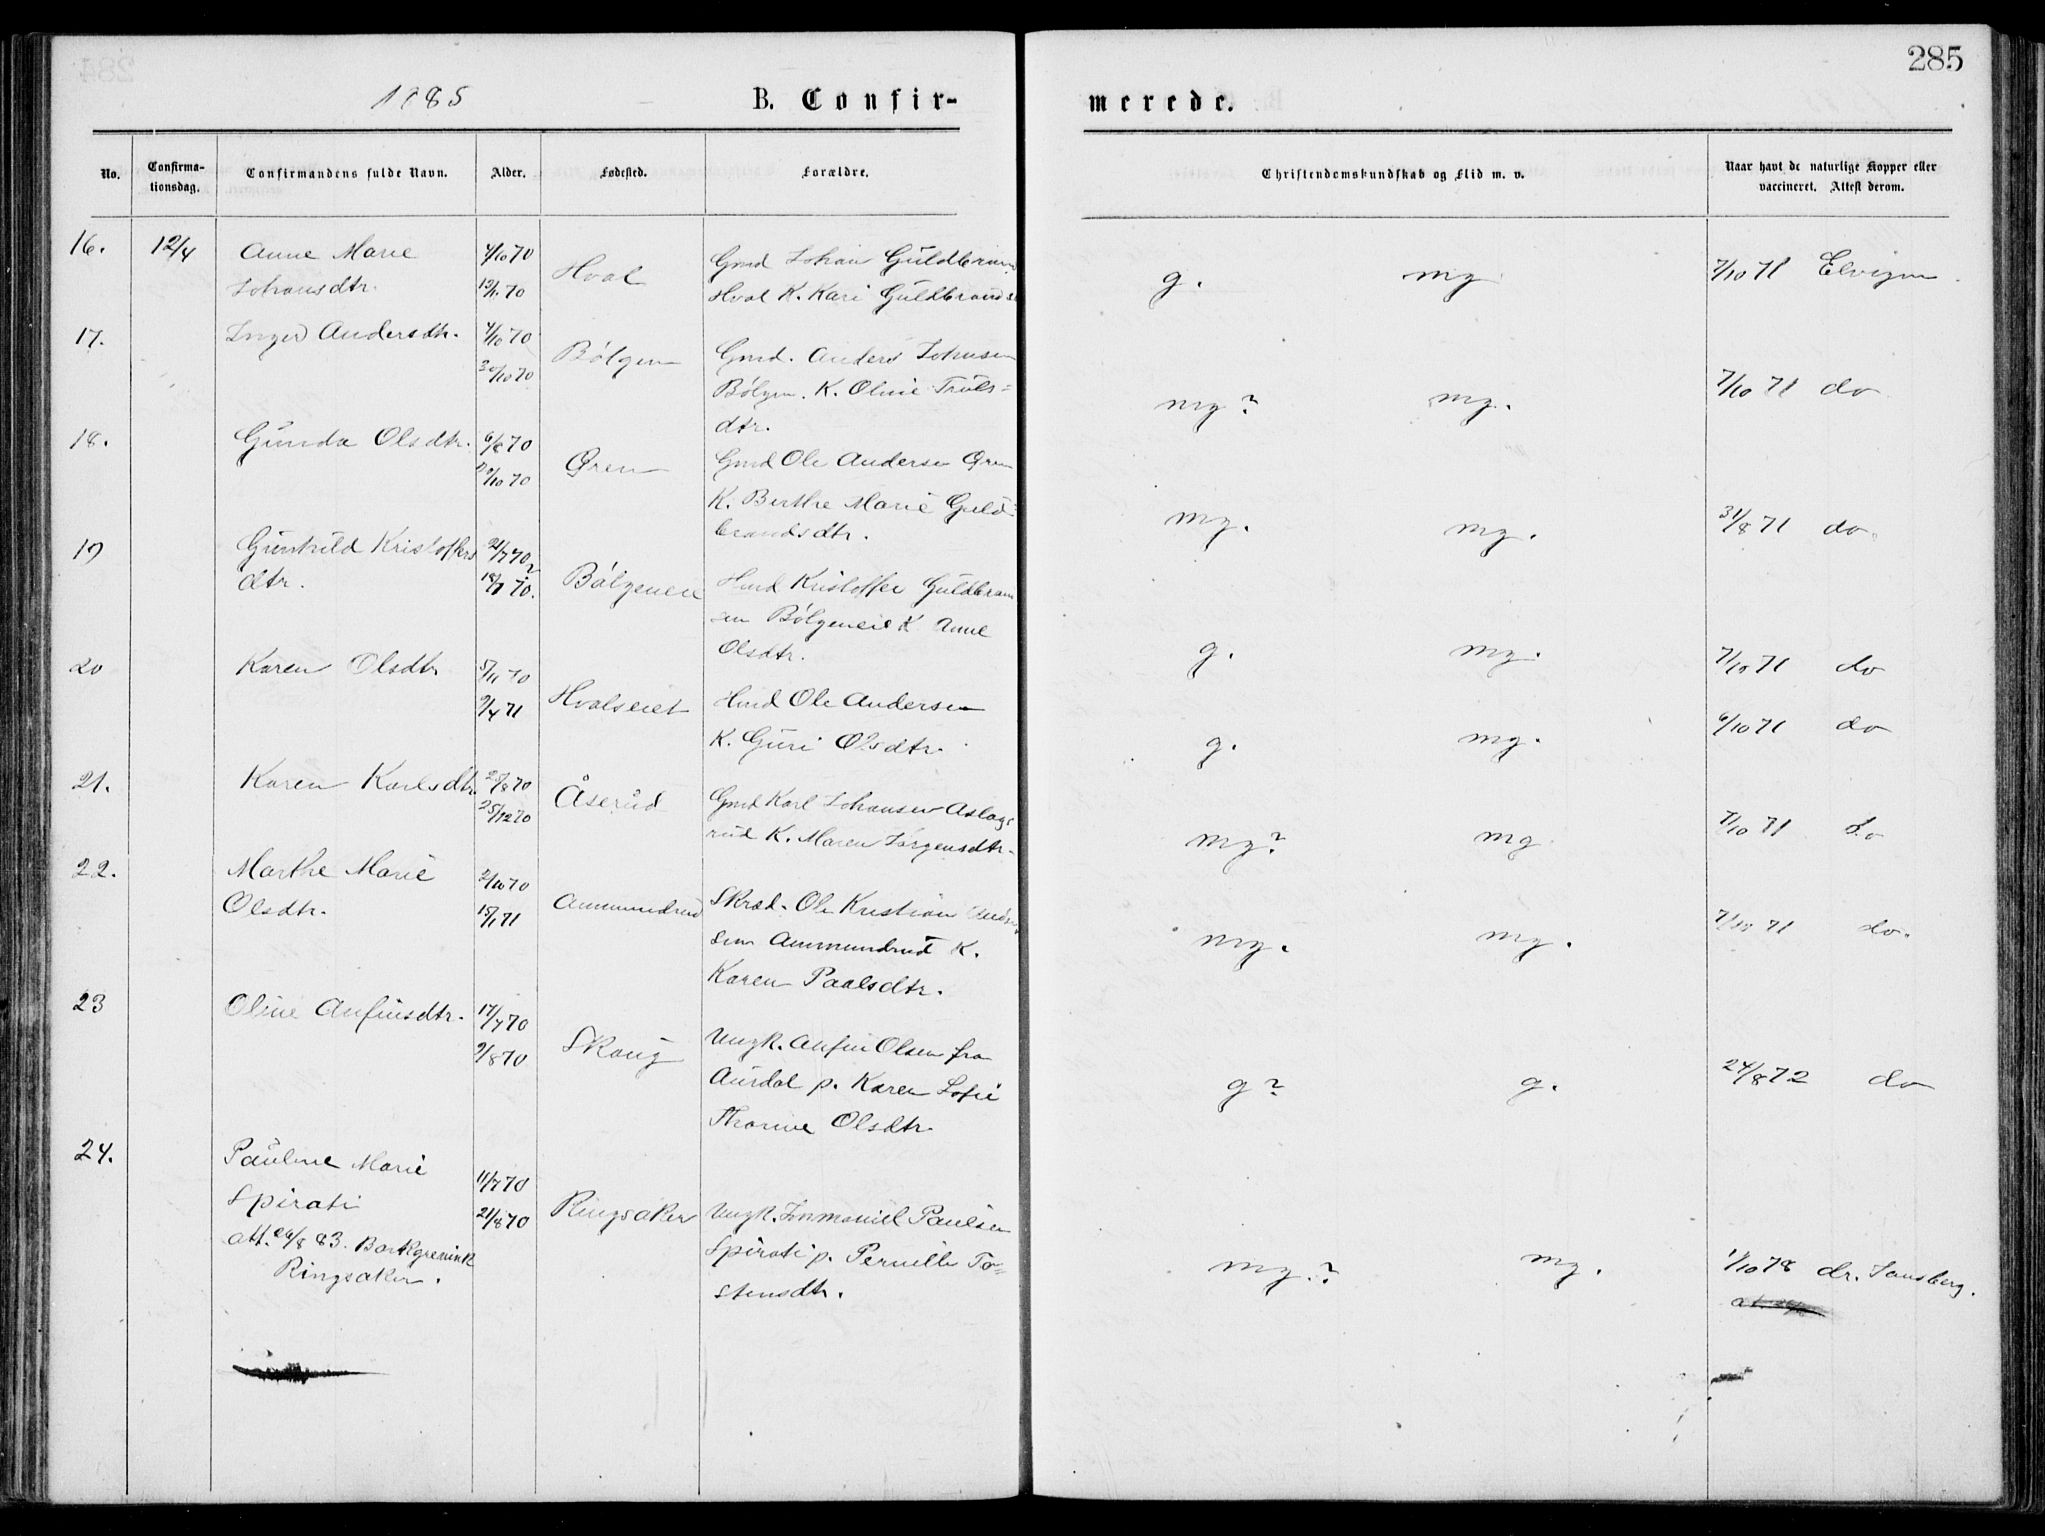 285
1885 B. Confir- merede.
No. Confirma-tionsdag. Confirmandens fulde Navn. Alder. Fødested. Forældre. Christendomskundskab og Flid m. v. Naar havt de naturlige Kopper eller vaccineret. Attest derom.
16. 12/4 Anne Marie 4/10 70 Gmd Johan Guldbrans
Johansdtr. 70 Hval Hval K. Kari Guldbrands g. mg 7/10 71 Elvigen
17. Inger Andersdtr. 4/10 70 Bølgen Gmd. Anders Johnsen
30/10 70 Bølgen. K. Oline Truls= mg? mg. 7/10 71 do
dtr.
18. Gunda Olsdtr. 6/8 70 Øren Gmd Ole Andersen Øren
/10 70 K. Berthe Marie Guld= mg. mg. 31/8 71 do.
brandsdtr.
19 Gunhild Kristoffers 21/7 70
dtr. 18/ 70. Bølgeneie Hmd Kristoffer Guldbran
sen Bølgeneie K. Anne g. mg. 7/10 71 do
Olsdtr.
20 Karen Olsdtr 5/11 70
9/4 71 Hvalseiet Hmd Ole Andersen
K. Guri Olsdtr. g. mg. 6/10 71 do
21. Karen Karlsdtr. 25/8 70 Åserud Gmd Karl Johansen Aslags
25/12 70 rud K. Maren Jørgensdtr. mg? mg 7/10 71 do
22. Marthe Marie 2/10 70
Olsdtr. 15/1 71 Ammundrud Skræd. Ole Kristian
sen Ammundrud K. mg. mg. 7/10 71 do.
Karen Paalsdtr.
23 Oline Anfinsdtr. 17/7 70
9/8 70 Skoug Ungk. Anfin Olsen fra
Aurdal p. Karen Sofie g? g. 24/8 72 do
Thorine Olsdtr.
24. Pauline Marie 11/7 70
Spirati 21/8 70 Ringsaker Ungk. Immanuel Paulsen
att. 26/8 83. Borkgrevink Spirati p. Pernille To= mg.? mg. 1/10 78 dr. Sansberg.
Ringsaker. stensdtr.